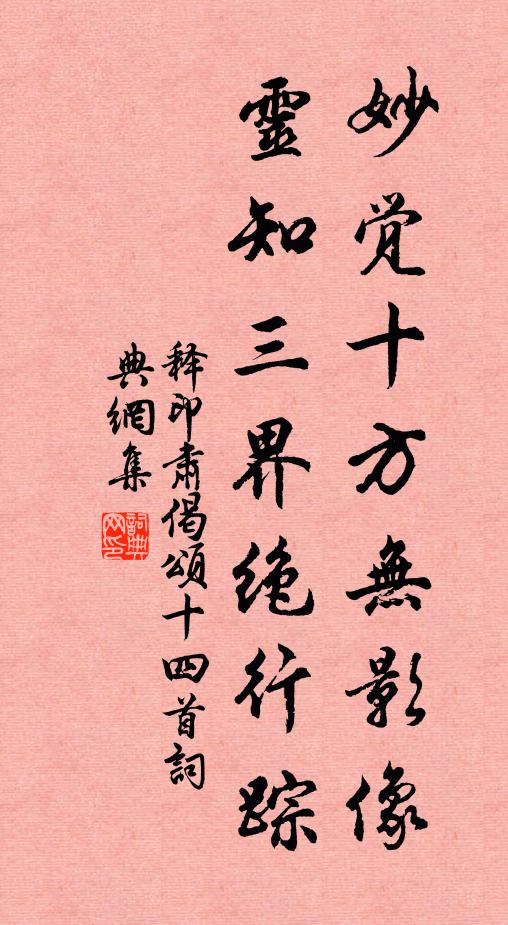 妙觉十方無影像
靈知三界绝行踪
释印肃偈頌十四首詞
典網集
詞典
网印